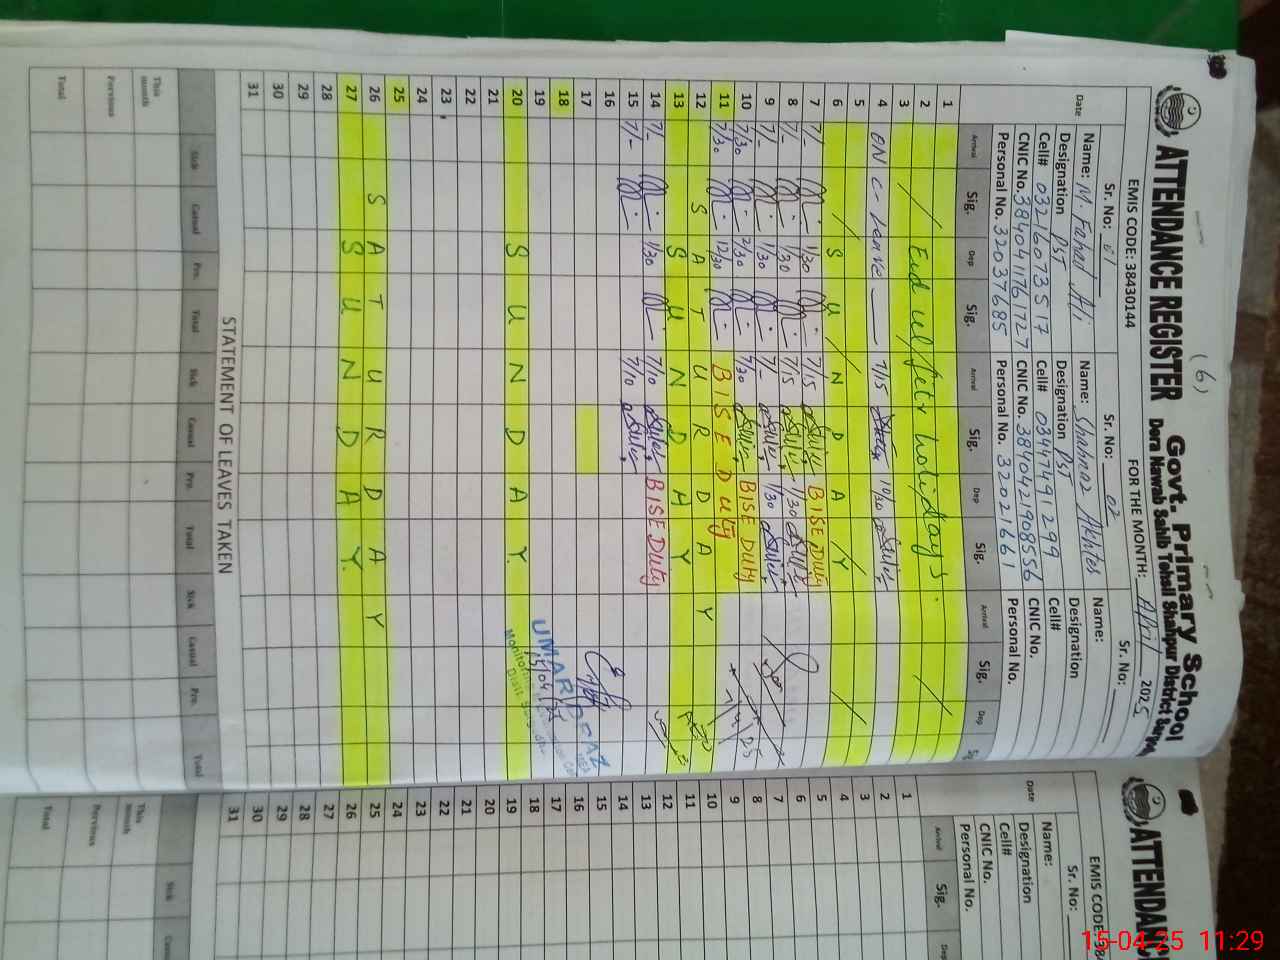 (6)
Govt. Primary School
ATTENDANCE REGISTER Dera Nawab Sahib Tehsil Shahpur District
EMIS CODE: 38430144 FOR THE MONTH: April 2025
Sr. No: 01 Sr. No: 02 Sr. No:
Name: M. Fahad Ali Name: Shahnaz Akhter Name:
Designation PST Designation PST Designation
Cell# 03216073517 Cell# 03474912991 Cell#
CNIC No. 3840411761727 CNIC No. 3840421908556 CNIC No.
Personal No. 32037685 Personal No. 32021661 Personal No.
Date Arrival Sig. Dep Sig. Arrival Sig. Dep Sig. Arrival Sig. Dep
1
2 Eid ul fitr holidays.
3
4 ON C- Leave 7/15 10/30
5
6 SUNDAY
7 7/- 1/30 7/15 BISE Duty
8 7/- 1/30 7/15 1/30
9 7/- 1/30 7/- 1/30
10 7/30 2/30 7/30 BISE Duty
11 7/30 12/30 BISE Duty
12 SATURDAY
13 SUNDAY
14 7/- 1/30 7/10 BISE Duty
15 7/- 7/10
16
17
18
19
20 SUNDAY.
21
22
23
24
25
26 SATURDAY
27 SUNDAY.
28
29
30
31
UMAR
15/04/25
STATEMENT OF LEAVES TAKEN
Sick Casual Pre. Total Sick Casual Pre. Total Sick Casual Pre. Total
This month
Previous
Total
ATTENDA
EMIS COD
Sr. No:
Name:
Designation
Cell#
CNIC No.
Personal No.
Date Arrival Sig. Dep
1
2
3
4
5
6
7
8
9
10
11
12
13
14
15
16
17
18
19
20
21
22
23
24
25
26
27
28
29
30
31
Sick
This month
Previous
Total
15-04-25 11:29